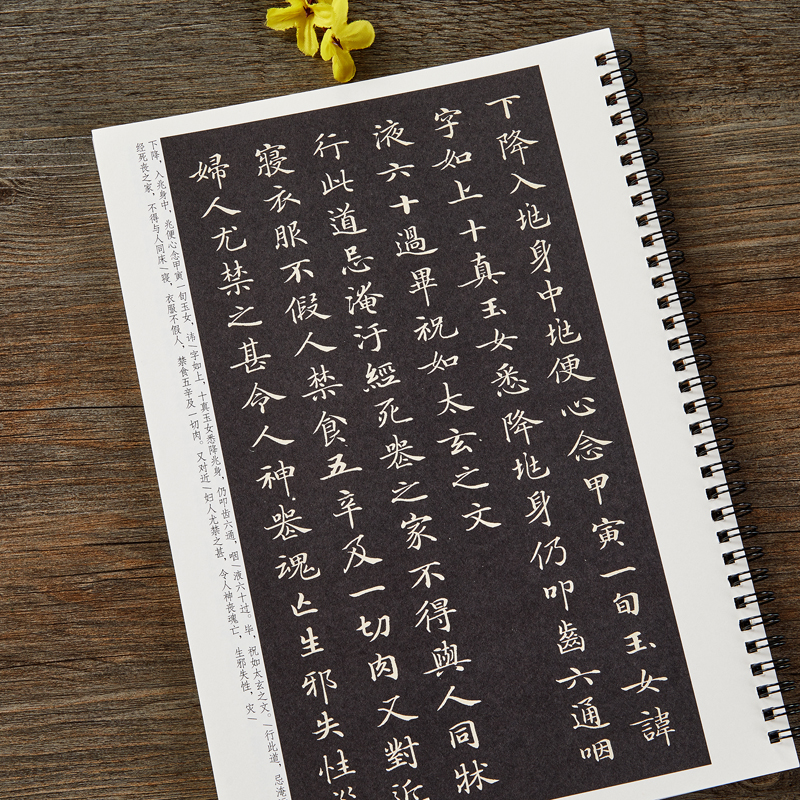 下降入垗身中垗便心念甲寅一旬玉女諱
字如上十真玉女悉降垗身仍叩齒六通咽
液六十過畢祝如太玄之文
行此道忌淹汙經死喪之家不得與人同牀
寢衣服不假人禁食五辛及一切肉又對近
婦人尤禁之甚令人神喪魂亡生邪失性災
下降，入兆身中，兆便心念甲寅一旬玉女，讳/字如上，十真玉女悉降兆身，仍叩齿六通，咽/液六十过。毕，祝如太玄之文。/行此道，忌淹
经死丧之家，不得与人同床/寝，衣服不假人，禁食五辛及一切肉。又对近/妇人尤禁之甚，令人神丧魂亡，生邪失性，灾/